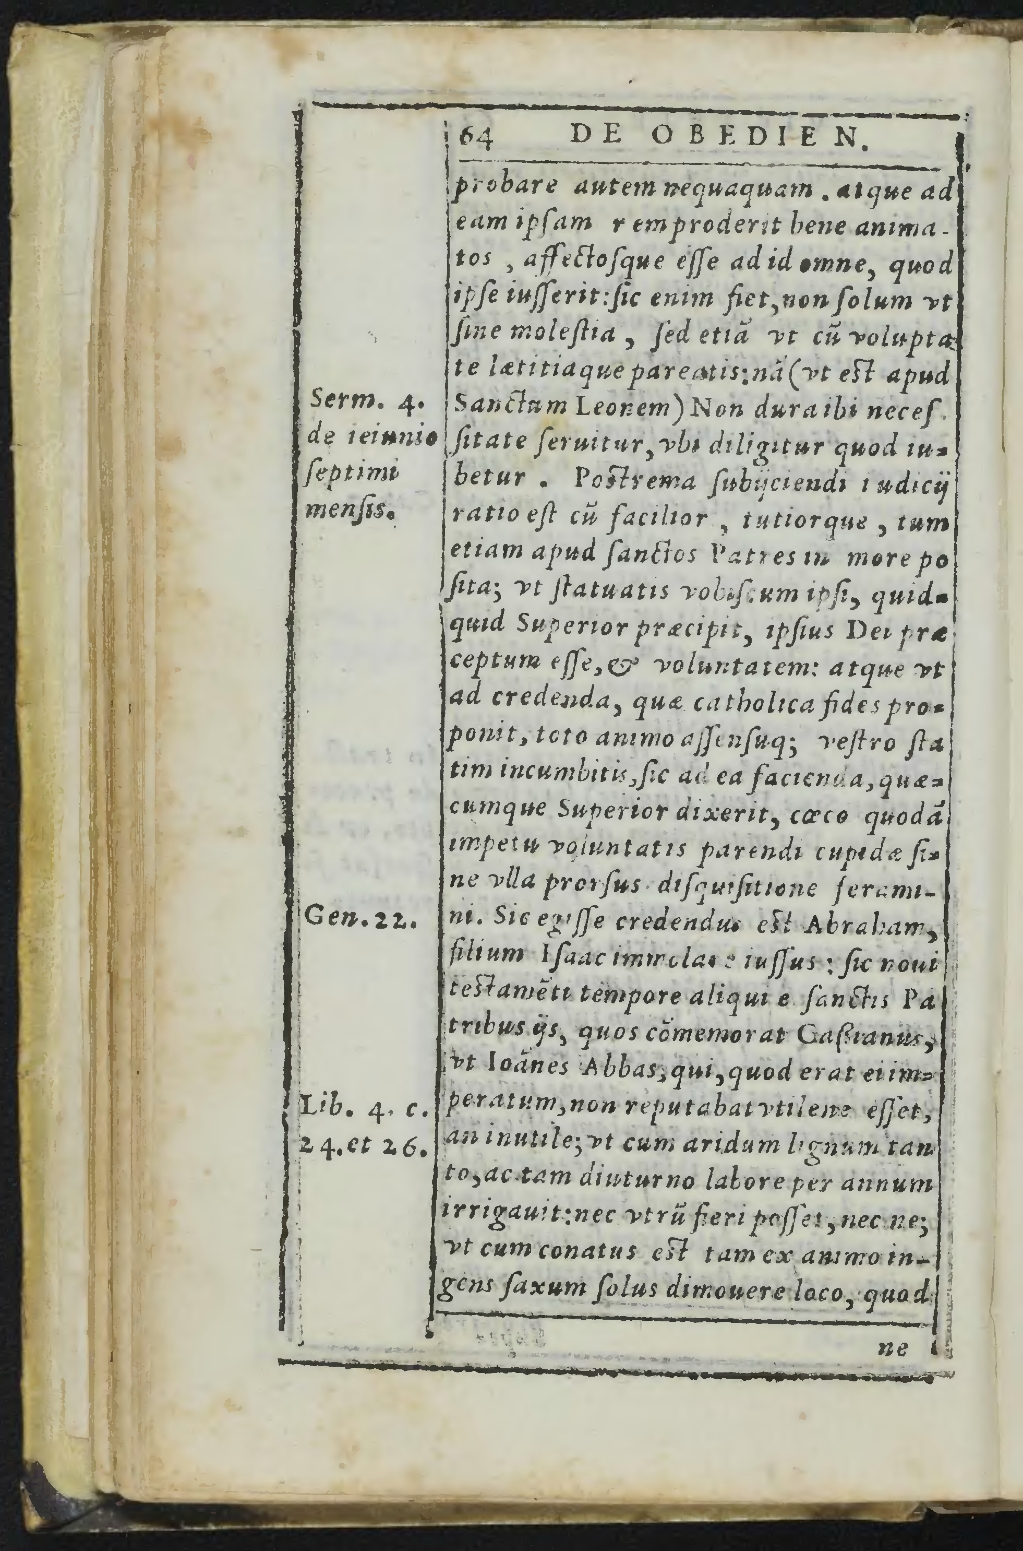 64 DE OBEDIEN.
probare autem nequaquam. atque ad
eam ipſam remproderit bene anima-
tos, affectoſque eſſe ad id omne, quod
ipſe iuſſerit: ſic enim fiet, non ſolum vt
ſine moleſtia, ſed etiā vt cū volupta-
te lætitiaque pareatis: nā (vt est apud
Serm. 4.
de ieiunio
ſeptimi
menſis.
Sanctum Leonem) Non dura ibi neceſ-
ſitate ſeruitur, vbi diligitur quod iu-
betur. Postrema ſubijciendi iudicij
ratio eſt cū facilior, tutiorque, tum
etiam apud ſanctos Patres in more po
ſita; vt ſtatuatis vobiſcum ipſi, quid-
quid Superior præcipit, ipſius Dei præ
ceptum eſſe, & voluntatem: atque vt
ad credenda, quæ catholica fides pro-
ponit, toto animo aſſenſuq; veſtro ſta
tim incumbitis, ſic ad ea facienda, quæ-
cumque Superior dixerit, cœco quodā
impetu voluntatis parendi cupidæ ſi-
ne vlla prorſus diſquiſitione ferami-
Gen. 22.
ni. Sic egiſſe credendus est Abraham,
filium Iſaac immolare iuſſus: ſic noui
testamēti tempore aliqui e ſanctis Pa
tribus ijs, quos cōmemorat Caſsianus,
vt Ioānes Abbas, qui, quod erat ei im-
Lib. 4. c.
24. et 26.
peratum, non reputabat vtilene eſſet,
an inutile; vt cum aridum lignum tan
to, ac tam diuturno labore per annum
irrigauit: nec vtrū fieri poſſet, nec ne;
vt cum conatus est tam ex animo in-
gens ſaxum ſolus dimouere loco, quod
ne